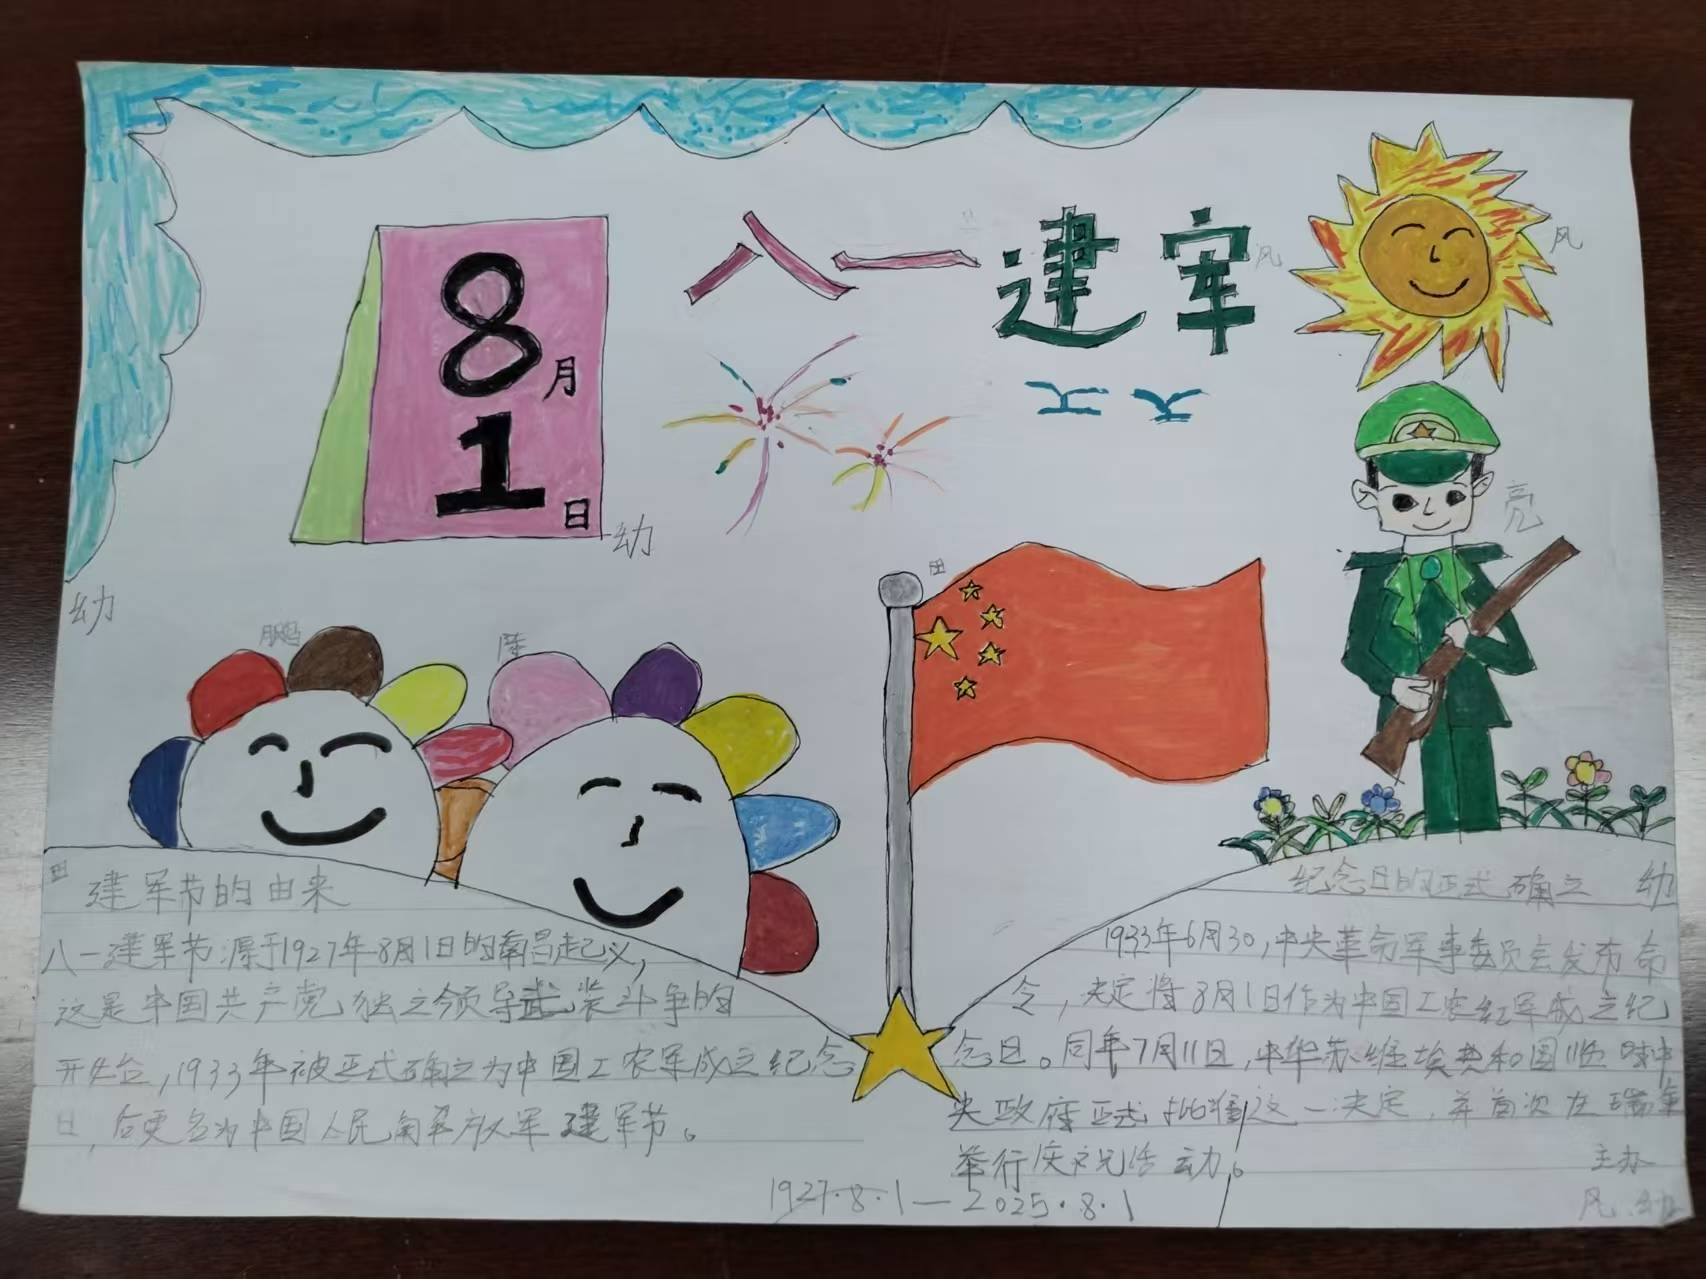 八一建军
8月
1日
风
风
亮
幼
幼
鹏
陆
田
田
建军节的由来
八一建军节源于1927年8月1日的南昌起义，
这是中国共产党独立领导武装斗争的
开始，1933年被正式确立为中国工农军成立纪念
日，后更名为中国人民解放军建军节。
纪念日的正式确立
幼
1933年6月30，中央革命军事委员会发布命
令，决定将8月1日作为中国工农红军成立纪
念日。同年7月11日，中华苏维埃共和国临时中
央政府正式批准这一决定，并首次在瑞金
举行庆祝活动。
1927.8.1—2025.8.1
主办
风.幼